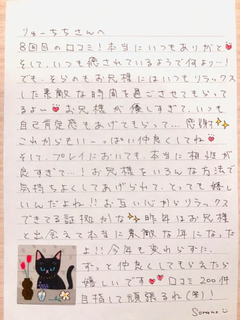 りゅーちちさんへ
8回目の口コミ!本当にいつもありがと
そして、いつも癒されているようで何より〜!
でも、そらのもお兄様にはいつもリラックス
した素敵な時間を過ごさせてもらって
るよ〜 お兄様が優しすぎて、いつも
自己肯定感もあげてもらって…感謝
これからもい〜っぱい仲良くしてね
そして、プレイにおいても、本当に相性が
良すぎて…!お兄様をいろんな方法で
気持ちよくしてあげられて、とっても嬉し
いんだよね!!お互い心からリラックス
できてる証拠かな 昨年はお兄様
と出会えて本当に素敵な年になった
よ!!今年も変わらずに、
ずっと仲良くしてもらえたら
嬉しいです 口コミ200件
目指して頑張るね(笑)!